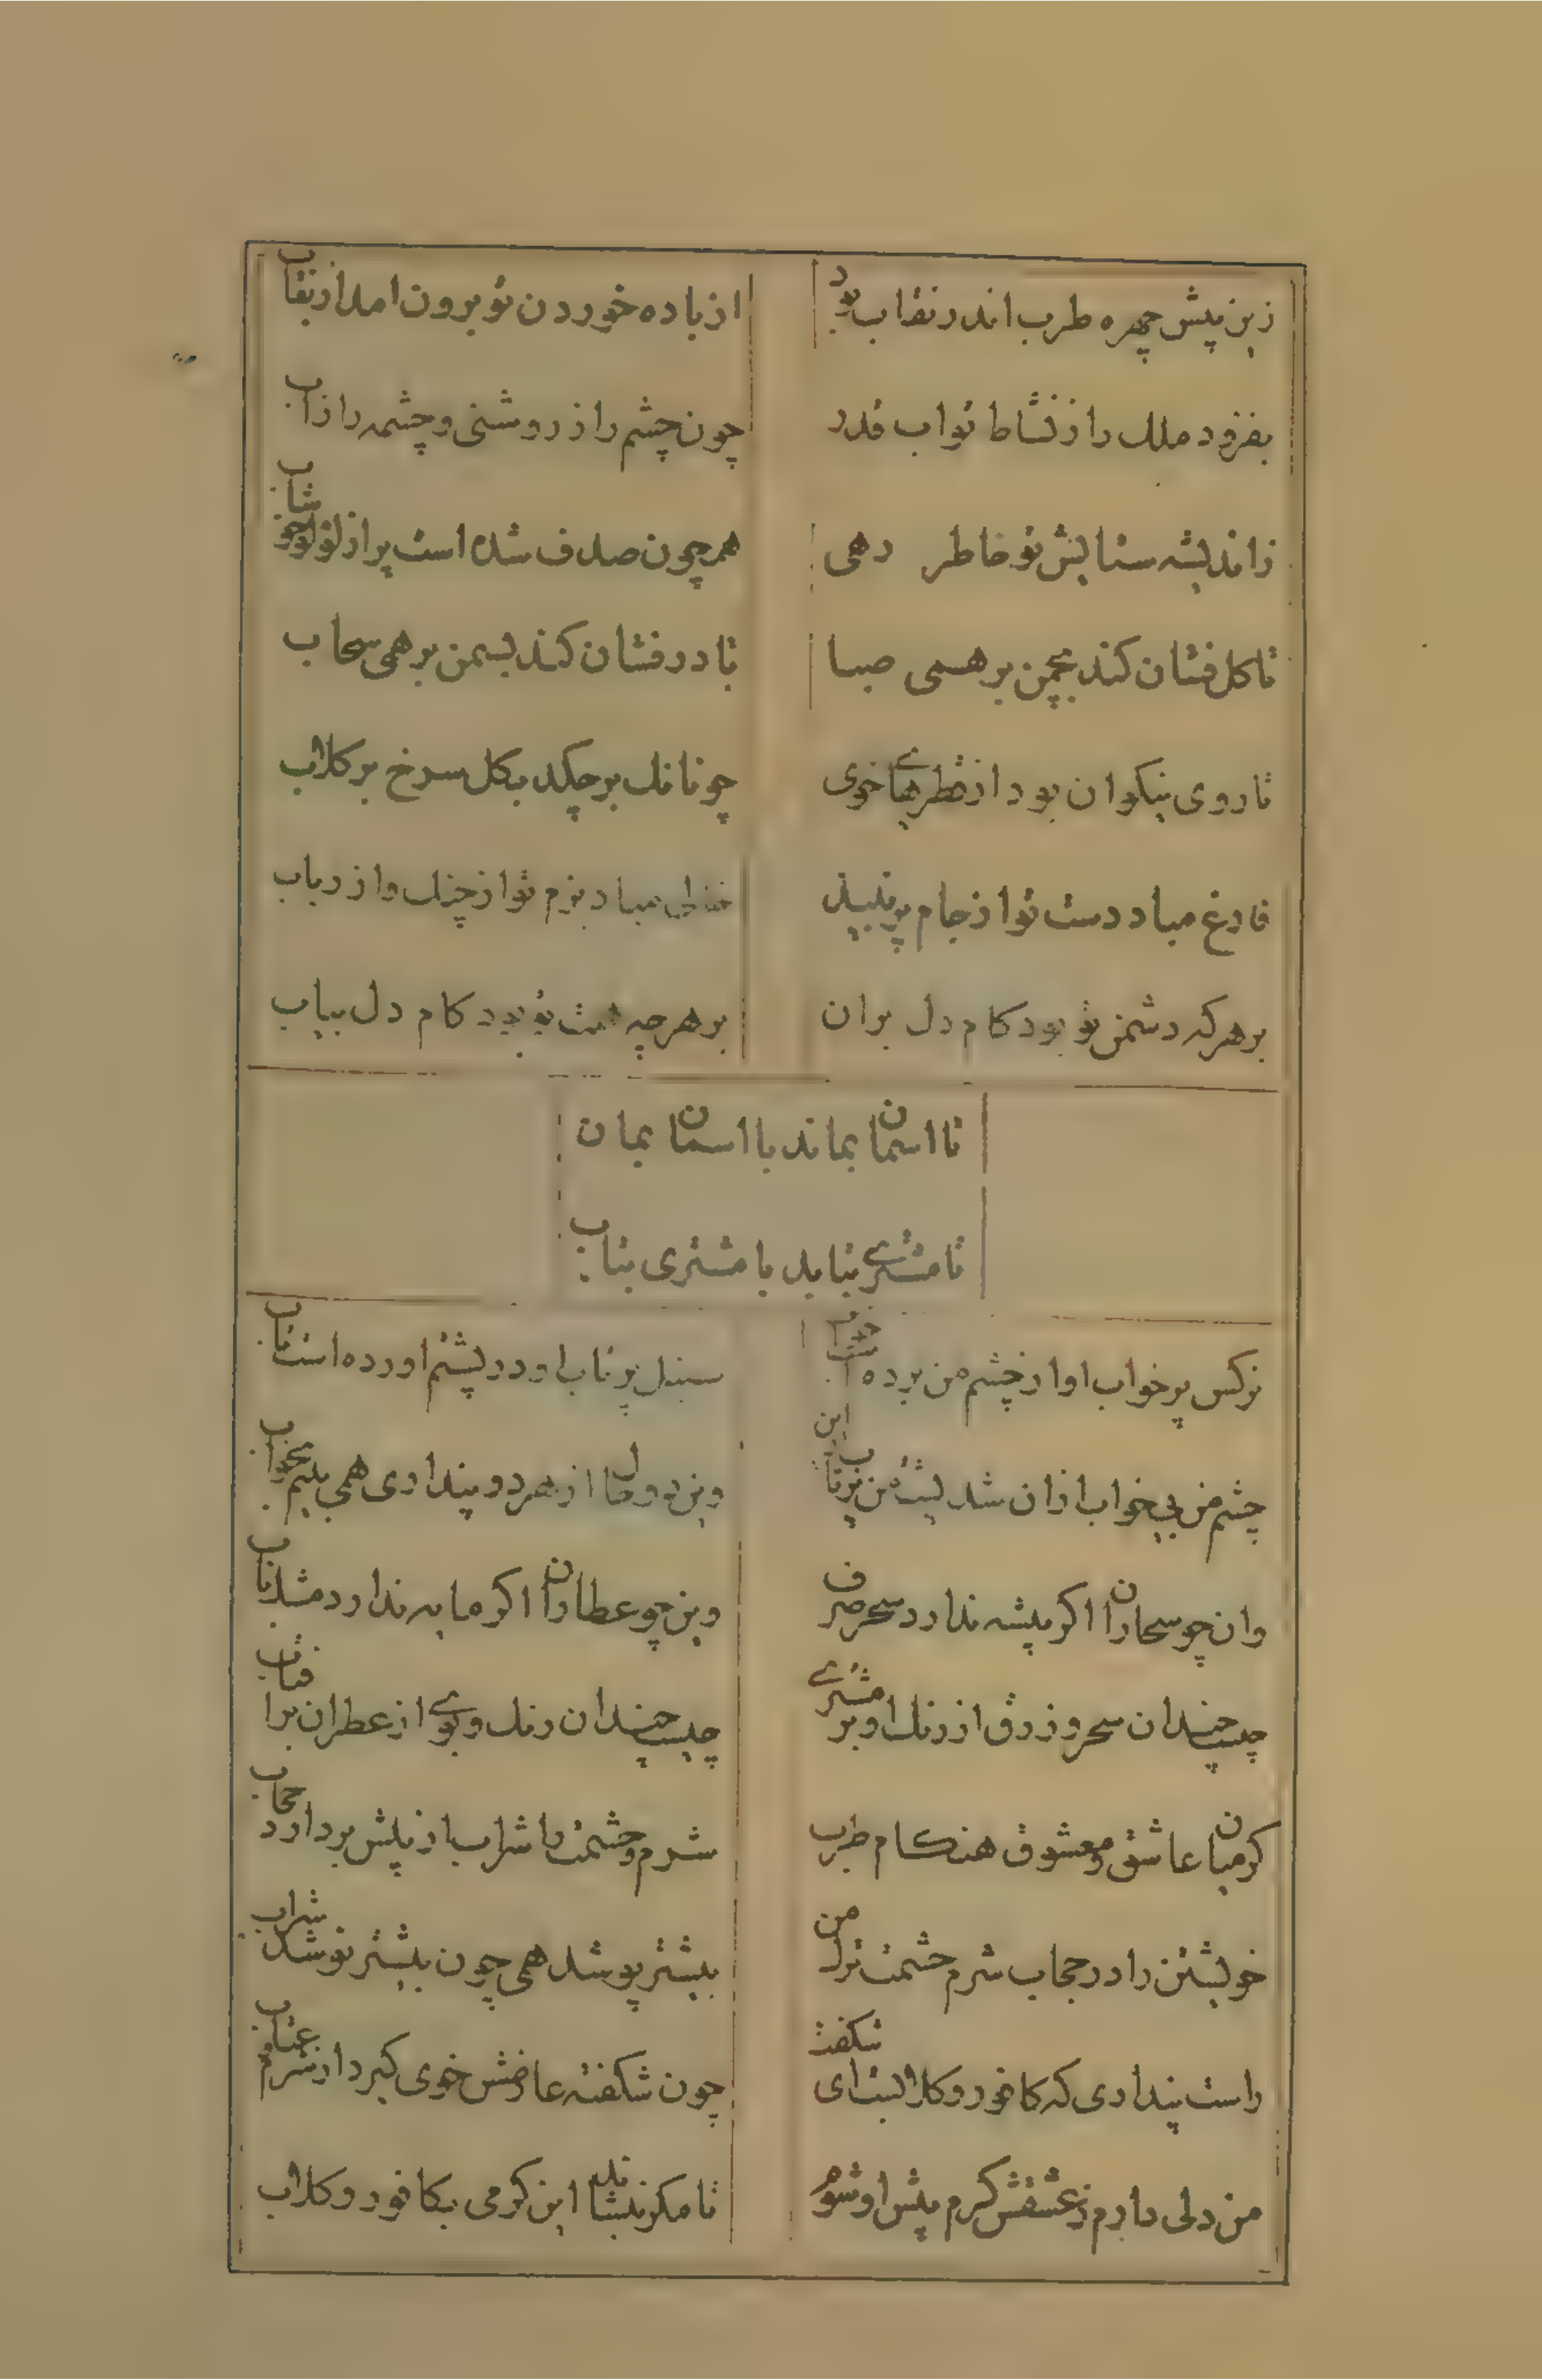 زین پیش چهره طرب اندر نقاب بود
از باده خوردن تو برون امد از نقاب
بفزود ملک را ز نشاط تو اب قدر
چون چشم را ز روشنی و چشمه را ز اب
ز اندیشه ستایش تو خاطر دهی
همچون صدف شده است پر از لولو خوشاب
تا کل فشان کند بچمن بر همی صبا
تا در فشان کند بسمن بر همی سحاب
تا روی نیکوان بود از قطرهای خوی
چونانک بر چکد بکل سرخ بر کلاب
فارغ مباد دست تو از جام پر نبیذ
خالی مباد بزم تو از چنک و از رباب
بر هر که دشمن تو بود کام دل بران
بر هر چه تو بود کام دل بیاب
تا اسمان بماند با اسمان بمان
تا مشتری بتابد با مشتری بتاب
نرکس پر خواب او از چشم من برده است خواب
سنبل پر تاب او در پشتم اورده است تاب
چشم من بی خواب ازان شد پشت من پر تاب ازین
وین دو حال از هر دو پنداری همی بینم بخواب
وان چو سحاران اکر پیشه ندارد سحر صرف
وین چو عطاران اکر مایه ندارد مشک ناب
چیست چندان سحر و زرق از رنک او بر مشتری
چیست چندان رنک و بوی از عطر ان بر افتاب
کر میان عاشق و معشوق هنکام طرب
شرم و حشمت را شراب از پیش بردارد حجاب
خویشتن را در حجاب شرم حشمت ترک من
بیشتر پوشد همی چون بیشتر نوشد شراب
راست پنداری که کافور و کلابست ای شکفت
چون شکفته عارضش خوی کیرد از شرم عتاب
من دلی دارم ز عشقش کرم پیش او شوم
تا مکر بنشاند این کرمی بکافور و کلاب